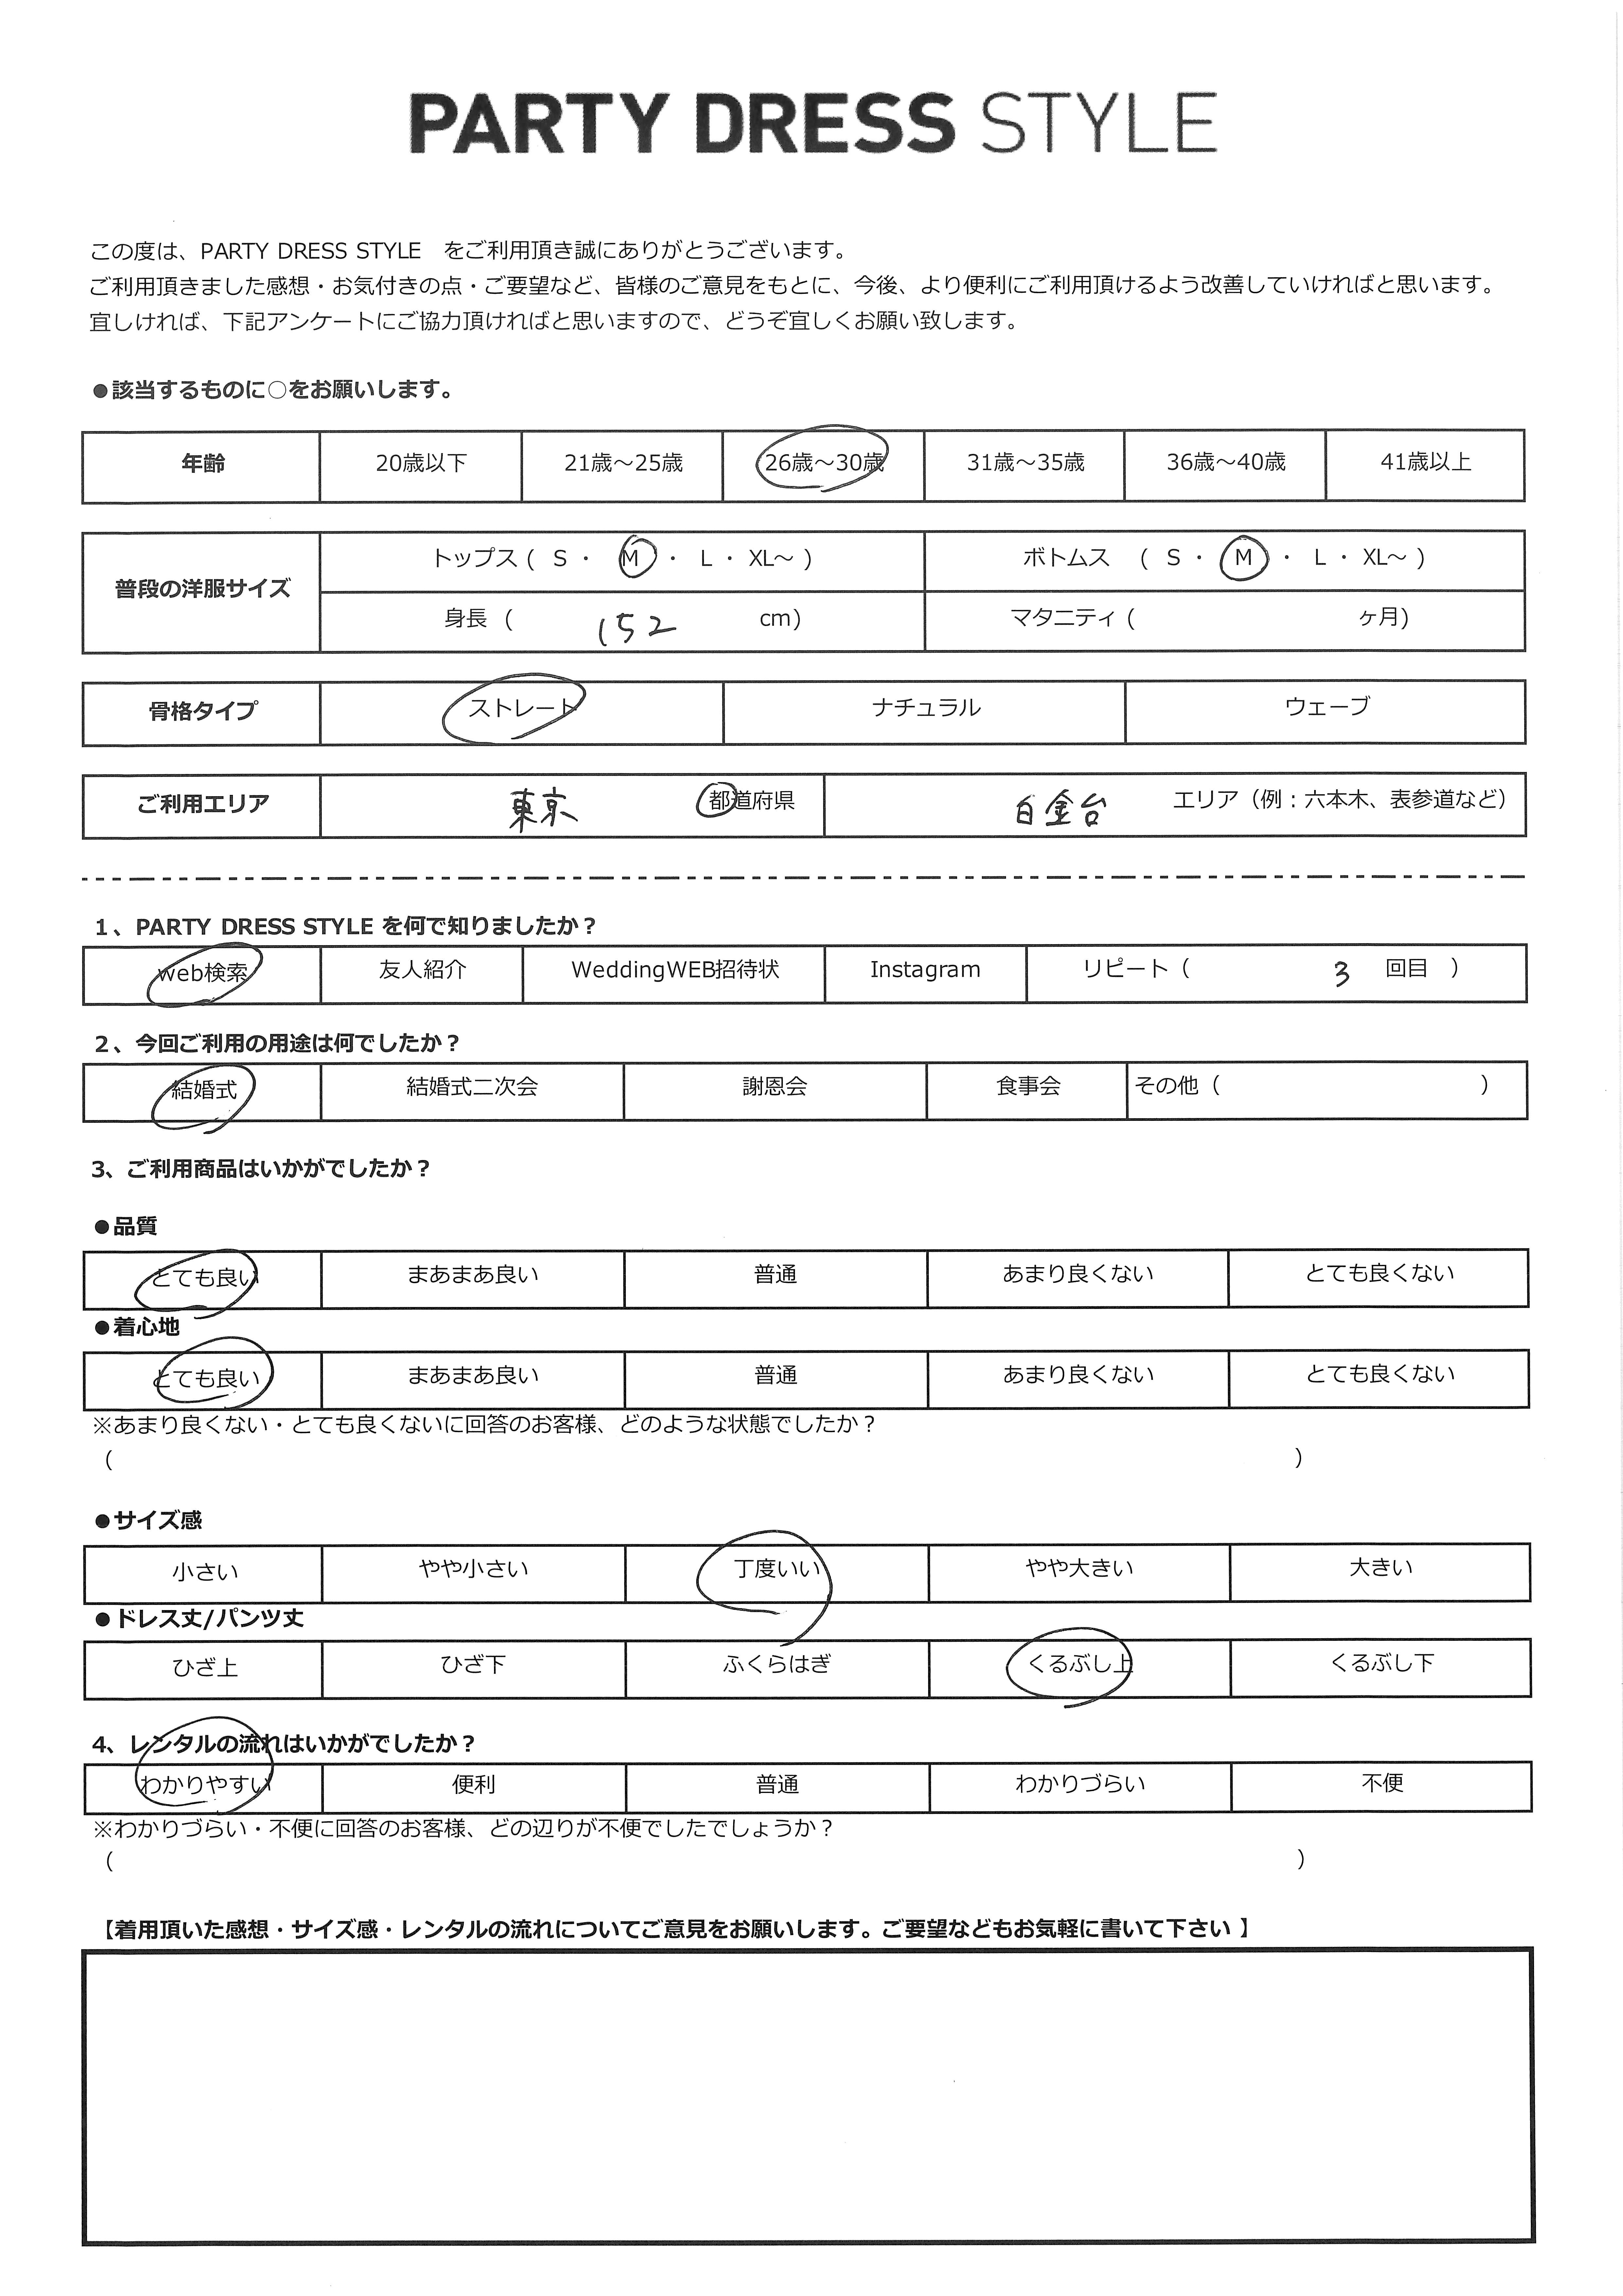 PARTY DRESS STYLE
この度は、PARTY DRESS STYLE　をご利用頂き誠にありがとうございます。
ご利用頂きました感想・お気付きの点・ご要望など、皆様のご意見をもとに、今後、より便利にご利用頂けるよう改善していければと思います。
宜しければ、下記アンケートにご協力頂ければと思いますので、どうぞ宜しくお願い致します。
●該当するものに○をお願いします。
年齢 20歳以下 21歳～25歳 26歳～30歳 31歳～35歳 36歳～40歳 41歳以上
普段の洋服サイズ トップス ( S ・ M ・ L ・ XL～ ) ボトムス ( S ・ M ・ L ・ XL～ )
身長 ( 152 cm) マタニティ ( ヶ月)
骨格タイプ ストレート ナチュラル ウェーブ
ご利用エリア 東京 都道府県 白金台 エリア（例：六本木、表参道など）
1、PARTY DRESS STYLE を何で知りましたか？
web検索 友人紹介 WeddingWEB招待状 Instagram リピート（ 3 回目 ）
2、今回ご利用の用途は何でしたか？
結婚式 結婚式二次会 謝恩会 食事会 その他（ ）
3、ご利用商品はいかがでしたか？
●品質
とても良い まあまあ良い 普通 あまり良くない とても良くない
●着心地
とても良い まあまあ良い 普通 あまり良くない とても良くない
※あまり良くない・とても良くないに回答のお客様、どのような状態でしたか？
（ ）
●サイズ感
小さい やや小さい 丁度いい やや大きい 大きい
●ドレス丈/パンツ丈
ひざ上 ひざ下 ふくらはぎ くるぶし上 くるぶし下
4、レンタルの流れはいかがでしたか？
わかりやすい 便利 普通 わかりづらい 不便
※わかりづらい・不便に回答のお客様、どの辺りが不便でしたでしょうか？
（ ）
【着用頂いた感想・サイズ感・レンタルの流れについてご意見をお願いします。ご要望などもお気軽に書いて下さい 】